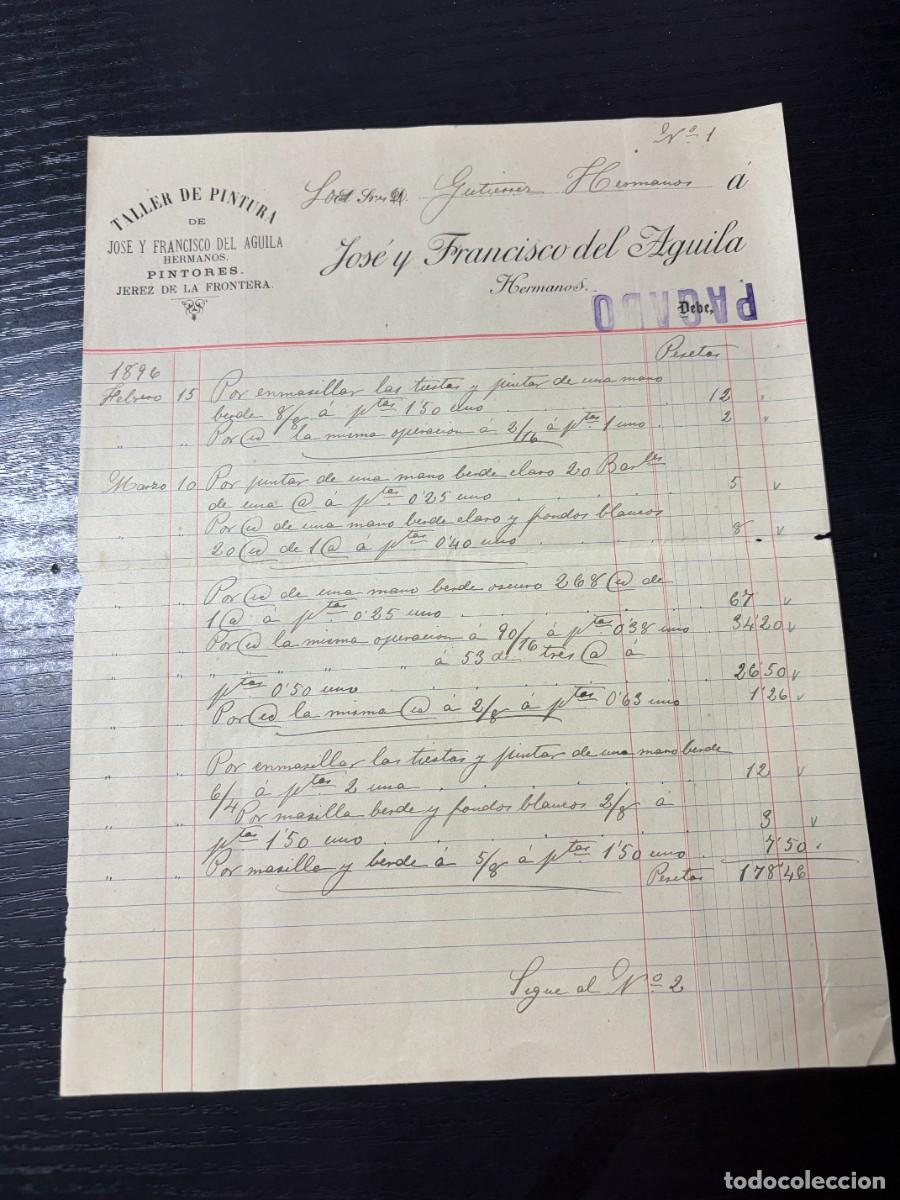 Nº 1
TALLER DE PINTURA
DE
JOSE Y FRANCISCO DEL AGUILA
HERMANOS.
PINTORES.
JEREZ DE LA FRONTERA.
Sres Gutierrez Hermanos á
José y Francisco del Aguila
Hermanos.
Debe,
PAGADO
Pesetas
1896
Febrero 15 Por enmasillar las tiestas y pintar de una mano
berde 8/8 á ptas 1'50 uno 12 "
" " Por @ la misma operacion á 2/16 á ptas 1 uno. 2 "
Marzo 10 Por pintar de una mano berde claro 20 Barles
de una @ á ptas 0'25 uno 5 v
" " Por @ de una mano berde claro y fondos blancos
20 @ de 1 @ á ptas 0'40 uno 8 v
" " Por @ de una mano berde oscuro 268 @ de
1 @ á ptas 0'25 uno 67 v
" " Por @ la misma operacion á 90/16 á ptas 0'38 uno 34'20 v
" " " " " á 53 de tres @ á
ptas 0'50 uno 26'50 v
" " Por @ la misma @ á 2/8 á ptas 0'63 uno 1'26 v
" " Por enmasillar las tiestas y pintar de una mano berde
6/4 á ptas 2 una 12 v
" " Por masilla berde y fondos blancos 2/8 á
ptas 1'50 uno 3 v
" " Por masilla y berde á 5/8 á ptas 1'50 uno 7'50
Pesetas 178'46
Sigue al Nº 2
todocoleccion